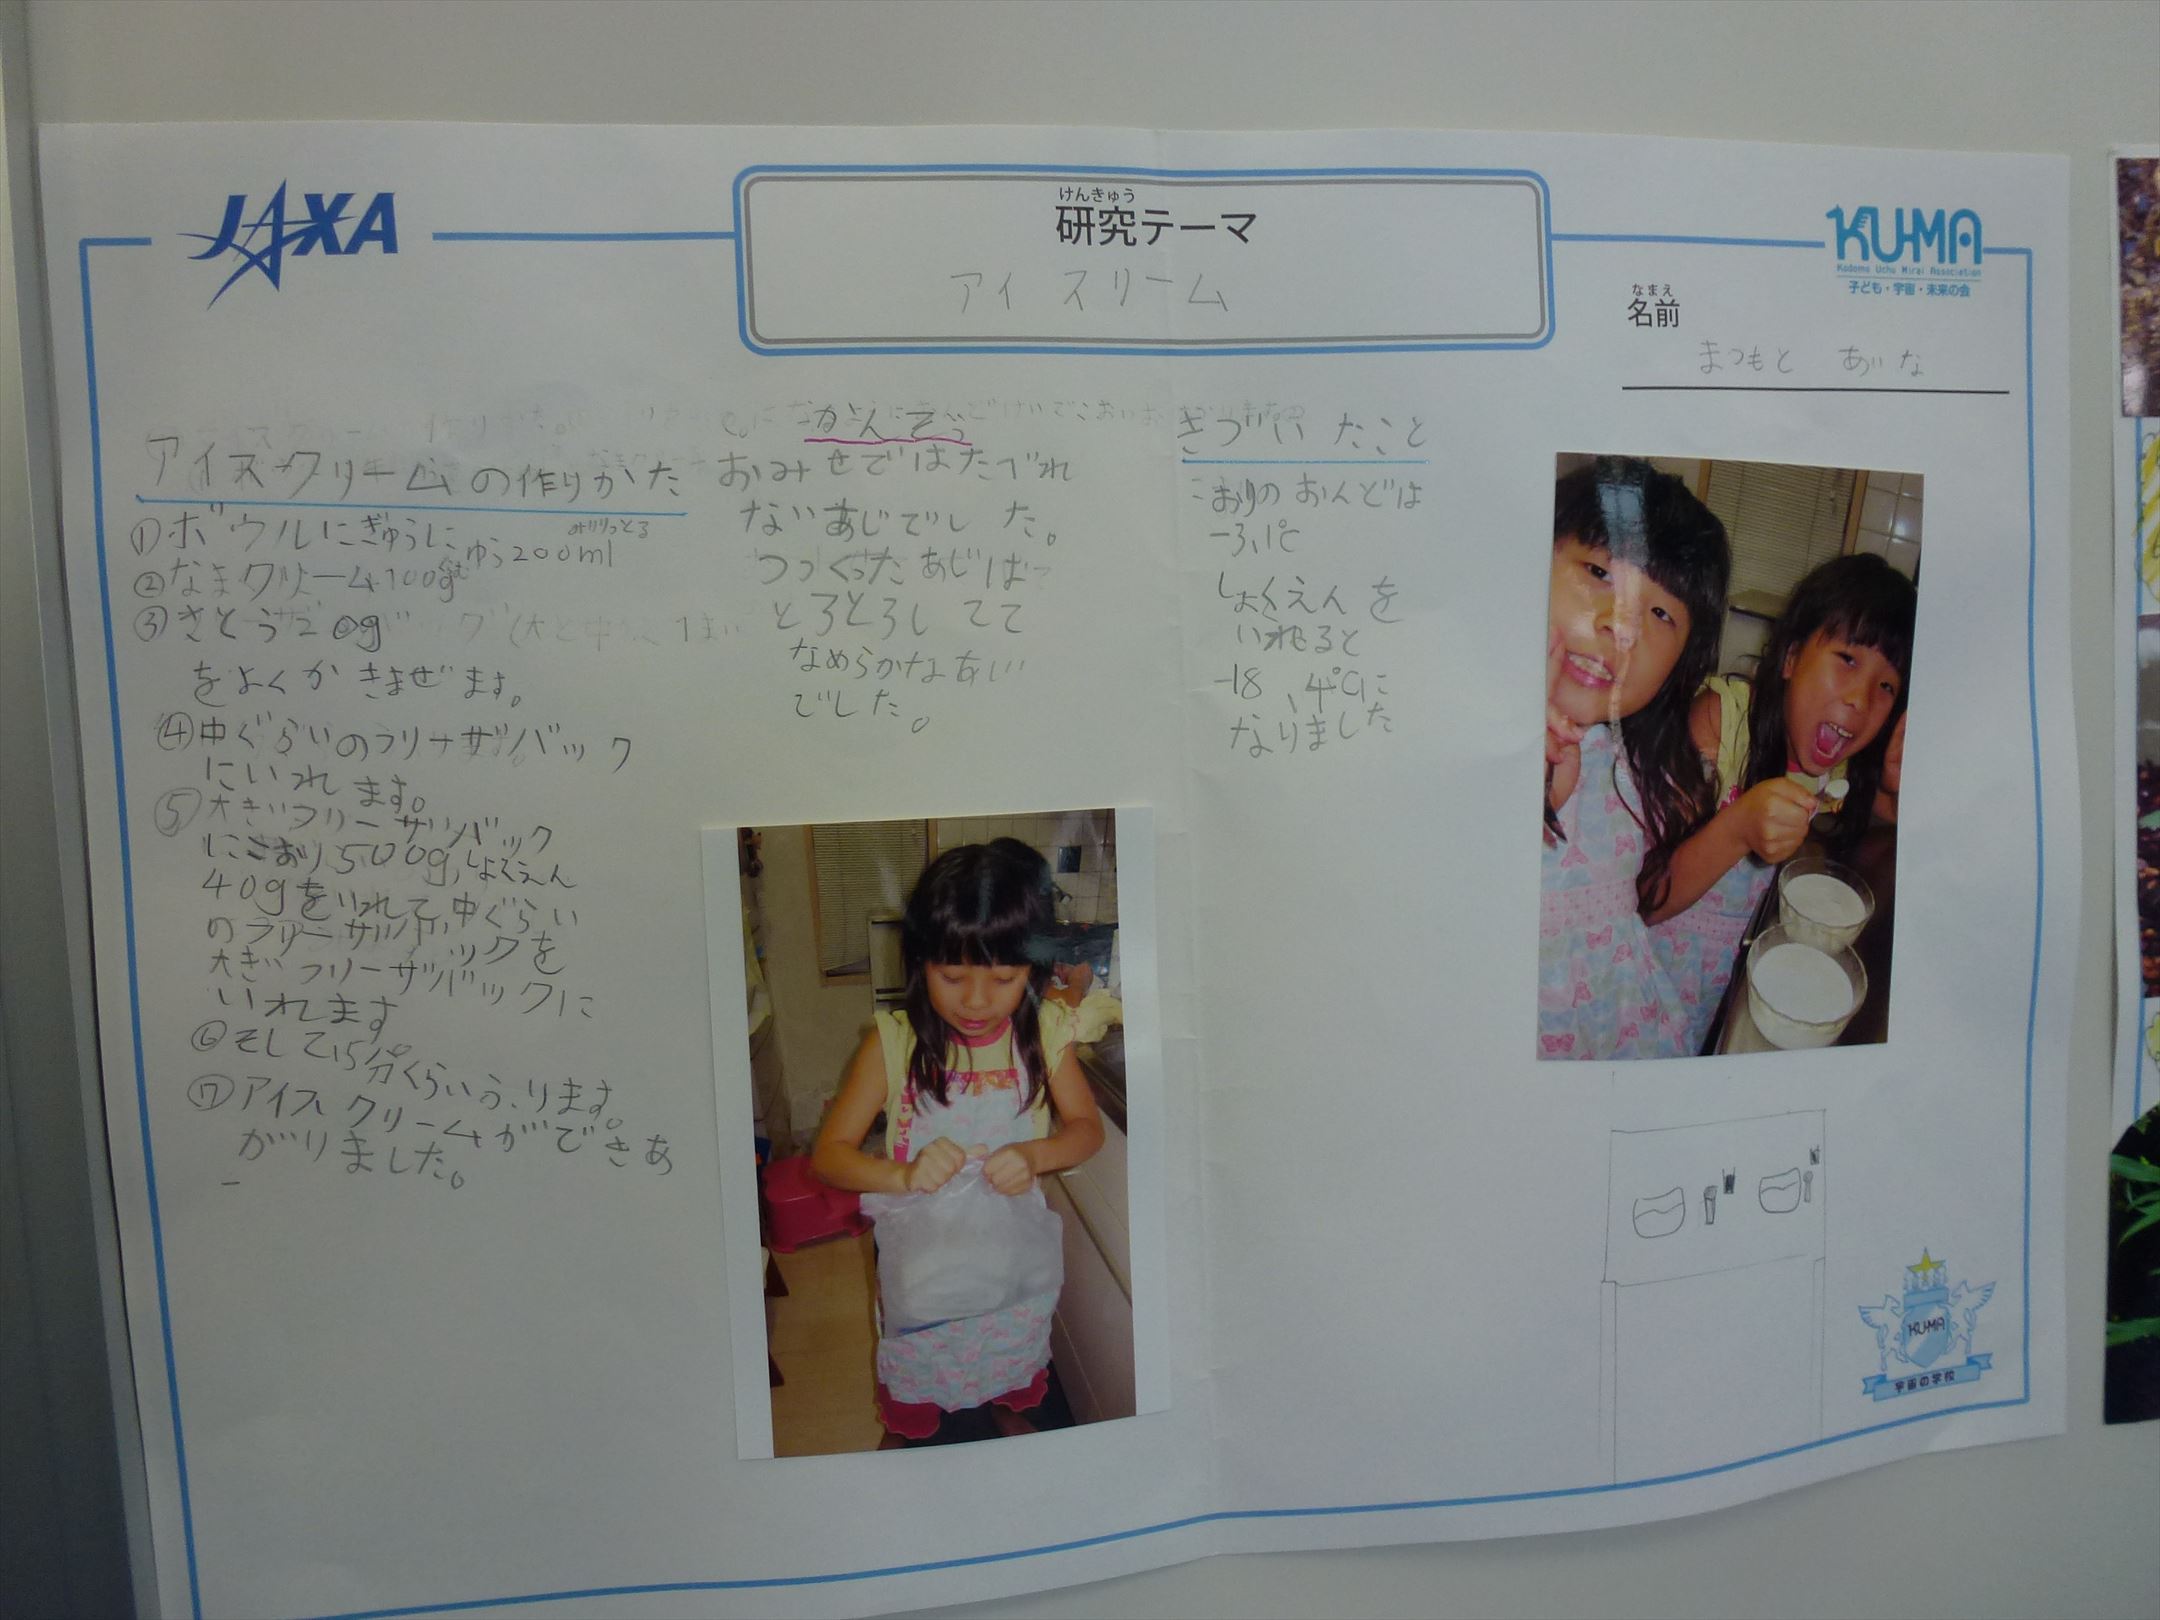 JAXA
けんきゅう
研究テーマ
アイスリーム
KU-MA
Kodomo Uchu Mirai Association
子ども・宇宙・未来の会
なまえ
名前
まつもと あいな
アイスクリームの作りかた
①ボウルにぎゅうにゅう200ml
みりりっとる
②なまクリーム100g
③さとう20g
をよくかきまぜます。
④中ぐらいのフリーザバック
にいれます。
⑤大きいフリーザバック
にこおり500g,しょくえん
40gをいれて,中ぐらい
のフリーザバックを
大きいフリーザバックに
いれます
⑥そして15分くらいふります。
⑦アイスクリームができあ
がりました。
かんそう
おみせではたべれ
ないあじでした。
つくったあじは
とろとろしてて
なめらかなあじ
でした。
きづいたこと
こおりのおんどは
-3,1℃
しょくえんを
いれると
-18,4℃に
なりました
KU-MA
宇宙の学校